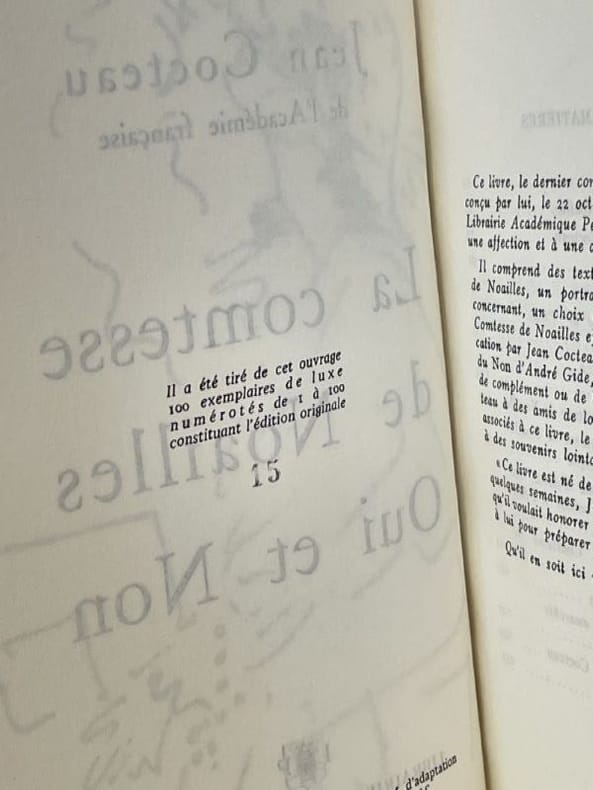 Jean Cocteau
de l'Académie française
La comtesse
de Noailles
Oui et Non
Il a été tiré de cet ouvrage
100 exemplaires de luxe
numérotés de 1 à 100
constituant l'édition originale
15
d'adaptation
MATIÈRES
Ce livre, le dernier
conçu par lui, le 22
Librairie Académique
une affection et à une
Il comprend des
de Noailles, un
concernant, un choix
Comtesse de Noailles
cation par Jean
du Non d'André Gide,
de complément ou de
teau à des amis de
associés à ce livre, le
à des souvenirs
« Ce livre est né de
quelques semaines, J
qu'il voulait honorer
à lui pour préparer
Qu'il en soit ici